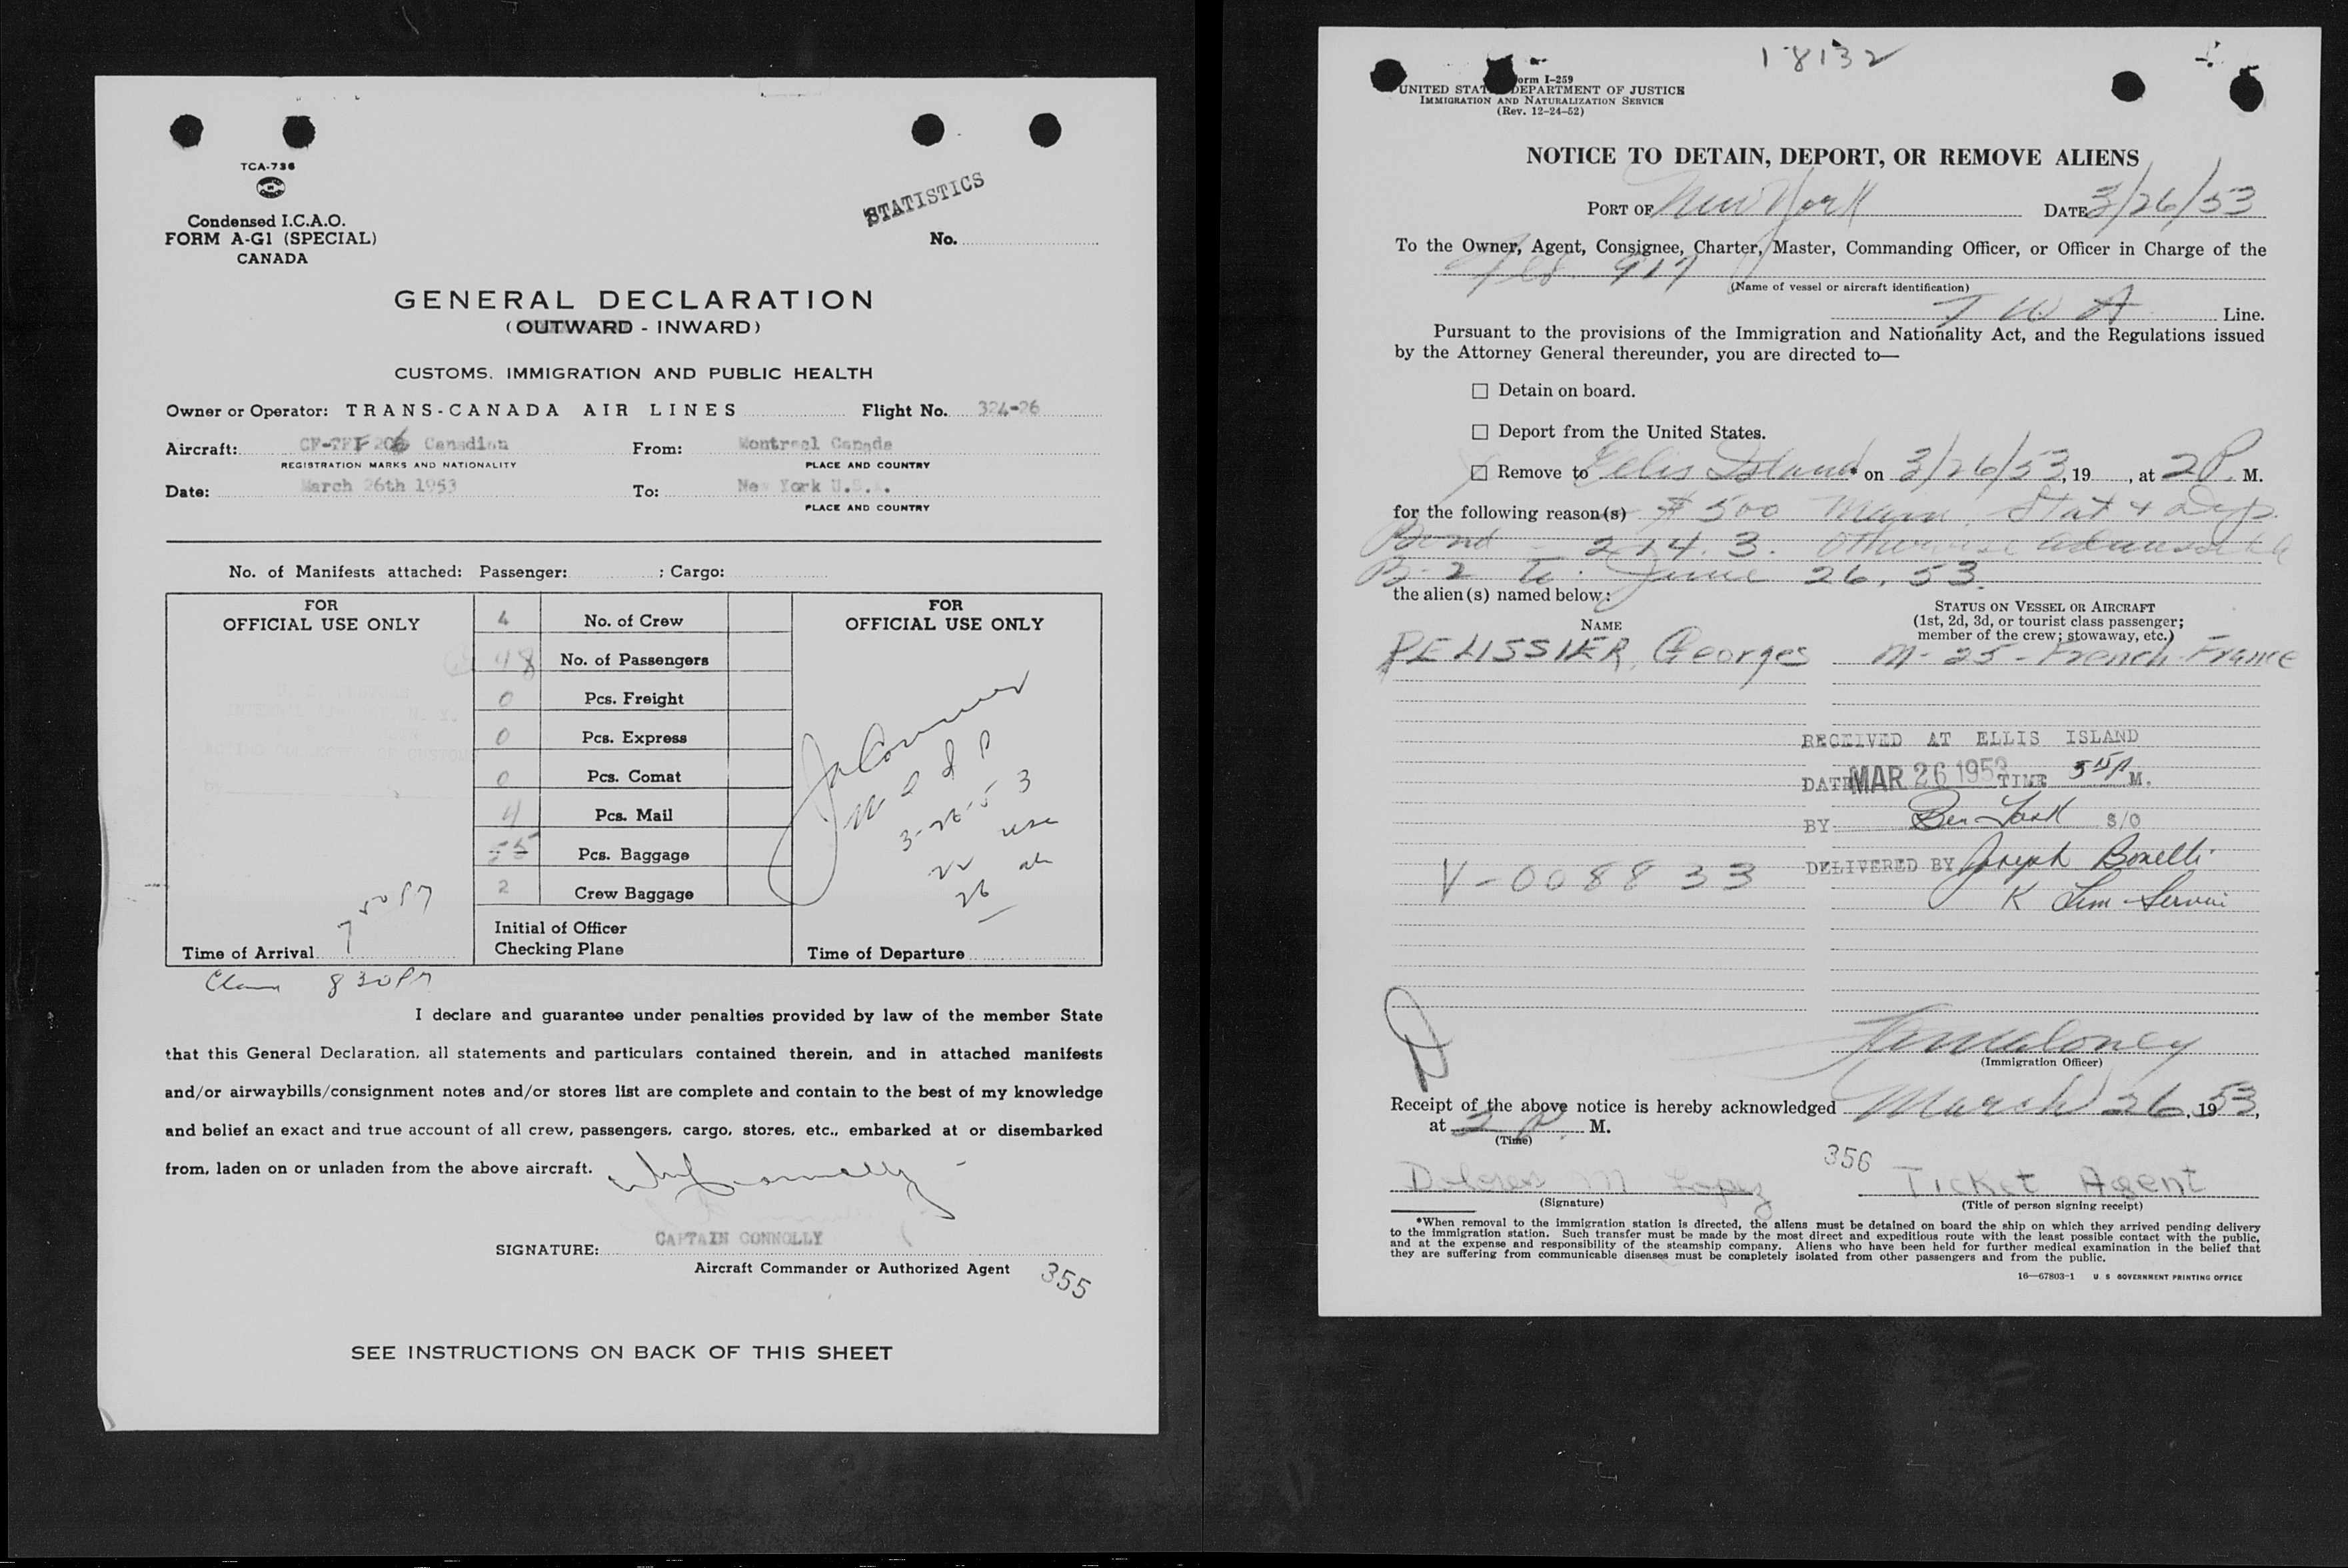 TCA-736
Condensed I.C.A.O.
FORM A-G1 (SPECIAL)
CANADA
STATISTICS
No.
GENERAL DECLARATION
(OUTWARD - INWARD)
CUSTOMS, IMMIGRATION AND PUBLIC HEALTH
Owner or Operator: TRANS-CANADA AIR LINES Flight No. 324-26
Aircraft: Canadian From: Montreal Canada
REGISTRATION MARKS AND NATIONALITY PLACE AND COUNTRY
Date: March 26th 1953 To: New York U.S.A.
PLACE AND COUNTRY
No. of Manifests attached: Passenger: ; Cargo:
FOR
OFFICIAL USE ONLY
4 No. of Crew
48 No. of Passengers
0 Pcs. Freight
0 Pcs. Express
0 Pcs. Comat
4 Pcs. Mail
55 Pcs. Baggage
2 Crew Baggage
Initial of Officer
Checking Plane
Time of Arrival
FOR
OFFICIAL USE ONLY
3-26-53
22
26
Time of Departure
830PM
I declare and guarantee under penalties provided by law of the member State
that this General Declaration, all statements and particulars contained therein, and in attached manifests
and/or airwaybills/consignment notes and/or stores list are complete and contain to the best of my knowledge
and belief an exact and true account of all crew, passengers, cargo, stores, etc., embarked at or disembarked
from, laden on or unladen from the above aircraft.
CAPTAIN CONNOLLY
SIGNATURE:
Aircraft Commander or Authorized Agent
355
SEE INSTRUCTIONS ON BACK OF THIS SHEET
18132
orm I-259
UNITED STAT DEPARTMENT OF JUSTICE
IMMIGRATION AND NATURALIZATION SERVICE
(Rev. 12-24-52)
NOTICE TO DETAIN, DEPORT, OR REMOVE ALIENS
PORT OF New York DATE 3/26/53
To the Owner, Agent, Consignee, Charter, Master, Commanding Officer, or Officer in Charge of the
917
(Name of vessel or aircraft identification)
TWA Line.
Pursuant to the provisions of the Immigration and Nationality Act, and the Regulations issued
by the Attorney General thereunder, you are directed to—
☐ Detain on board.
☐ Deport from the United States.
☐ Remove to Ellis Island * on 3/26/53, 19 , at 2 P. M.
for the following reason(s) $500 Main. Stat & Dep.
Bond - 214.3. Otherwise admissible
B-2 to June 26, 53.
the alien(s) named below:
NAME
STATUS ON VESSEL OR AIRCRAFT
(1st, 2d, 3d, or tourist class passenger;
member of the crew; stowaway, etc.)
PELISSIER, Georges M-25-French-France
RECEIVED AT ELLIS ISLAND
DATE MAR 26 1953 TIME M.
BY S/O
V-008833
DELIVERED BY Joseph Bonelli
(Immigration Officer)
Receipt of the above notice is hereby acknowledged March 26, 1953,
at 2 P. M.
(Time)
356
Dolores M Lopez Ticket Agent
(Signature) (Title of person signing receipt)
*When removal to the immigration station is directed, the aliens must be detained on board the ship on which they arrived pending delivery
to the immigration station. Such transfer must be made by the most direct and expeditious route with the least possible contact with the public,
and at the expense and responsibility of the steamship company. Aliens who have been held for further medical examination in the belief that
they are suffering from communicable diseases must be completely isolated from other passengers and from the public.
16—67803-1 U S GOVERNMENT PRINTING OFFICE